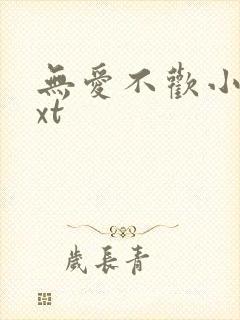 無愛不歡小
xt
歲長青